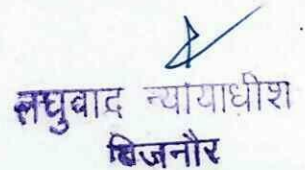 लघुवाद न्यायाधीश
बिजनौर